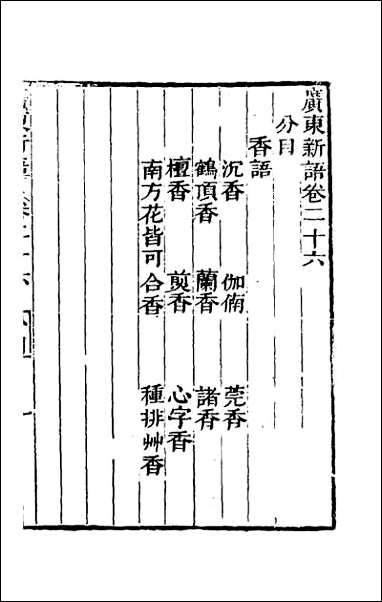 廣東新語卷二十六
分目
香語
沉香 伽㑲 莞香
鶴頂香 蘭香 諸香
檀香 煎香 心字香
南方花皆可合香 種排艸香